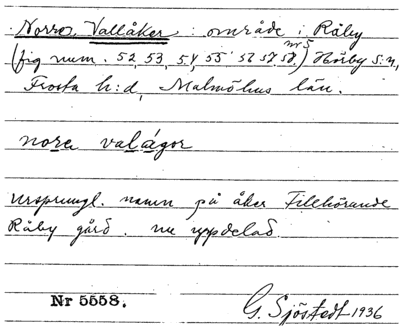 Norra Vallåker : område i Råby
(fig num. 52, 53, 54, 55 57 58 nr 5) Hörby s:n,
Frosta h:d, Malmöhus län.
nora valágor
ursprungl. namn på åker tillhörande
Råby gård. nu uppdelad.
Nr 5558.
G. Sjöstedt 1936